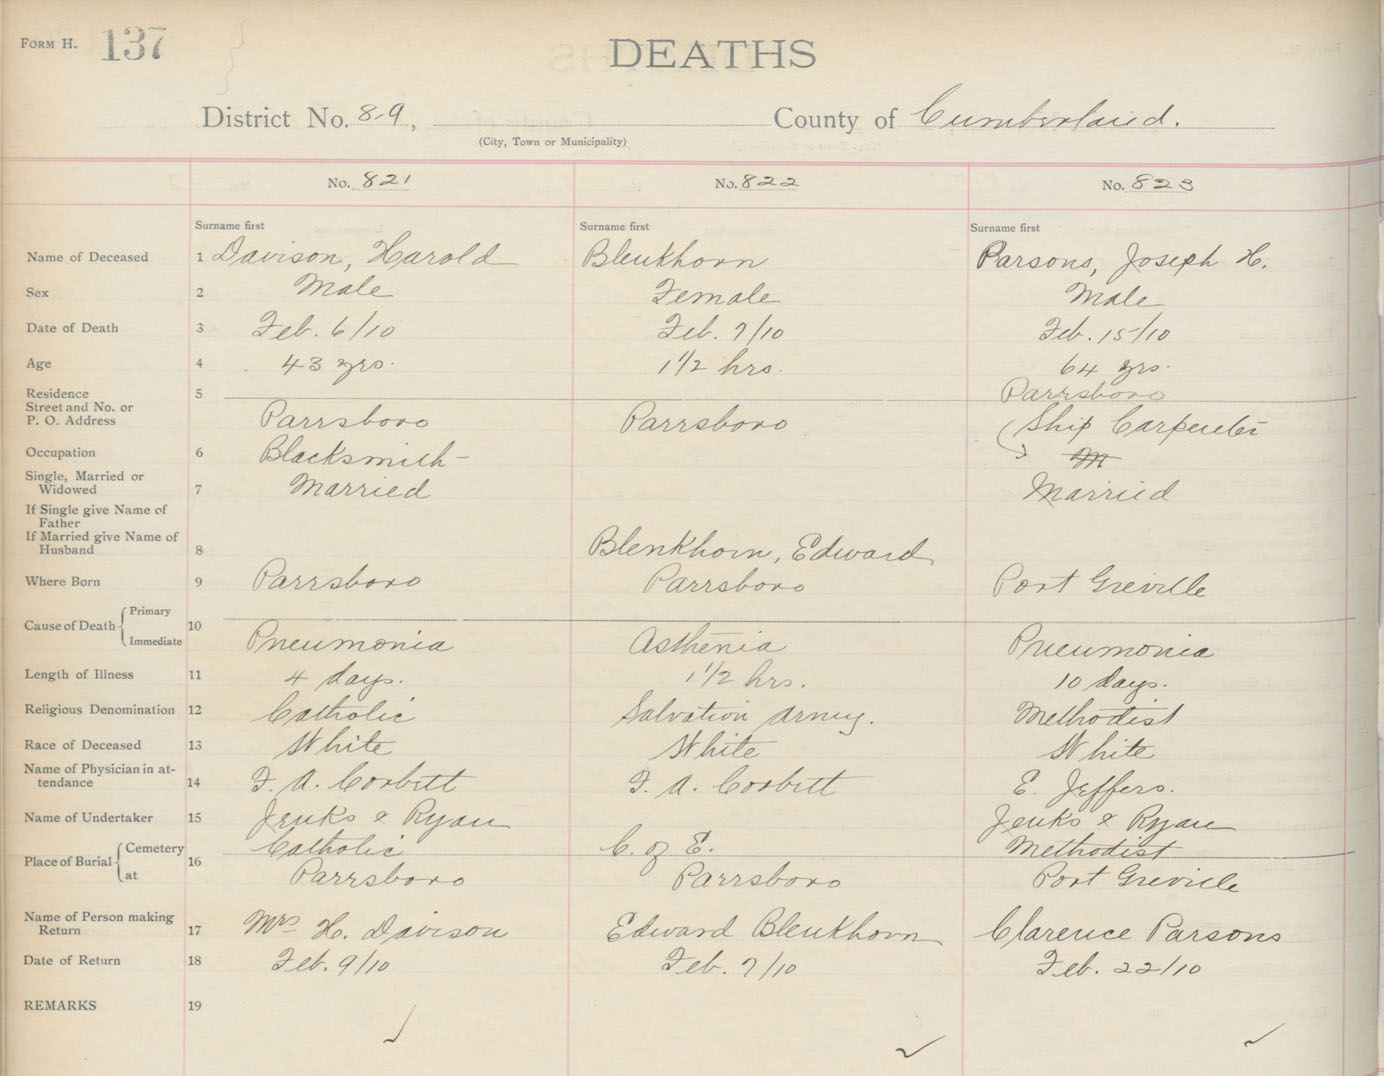 FORM H. 137
DEATHS
District No. 8-9, County of Cumberland.
(City, Town or Municipality)
No. 821 No. 822 No. 823
Surname first Surname first Surname first
Name of Deceased 1 Davison, Harold Blenkhorn Parsons, Joseph H.
Sex 2 Male Female Male
Date of Death 3 Feb. 6/10 Feb. 7/10 Feb. 15/10
Age 4 43 yrs. 1 1/2 hrs. 64 yrs.
Residence 5 Parrsboro
Street and No. or
P. O. Address Parrsboro Parrsboro Ship Carpenter
Occupation 6 Blacksmith M
Single, Married or
Widowed 7 Married Married
If Single give Name of
Father
If Married give Name of
Husband 8 Blenkhorn, Edward
Where Born 9 Parrsboro Parrsboro Port Greville
Cause of Death Primary
10
Immediate Pneumonia Asthenia Pneumonia
Length of Illness 11 4 days. 1 1/2 hrs. 10 days.
Religious Denomination 12 Catholic Salvation Army. Methodist
Race of Deceased 13 White White White
Name of Physician in at-
tendance 14 F. A. Corbett F. A. Corbett E. Jeffers.
Name of Undertaker 15 Jenks & Ryan Jenks & Ryan
Place of Burial Cemetery Catholic C. of E. Methodist
16
at Parrsboro Parrsboro Port Greville
Name of Person making
Return 17 Mrs H. Davison Edward Blenkhorn Clarence Parsons
Date of Return 18 Feb. 9/10 Feb. 7/10 Feb. 22/10
REMARKS 19